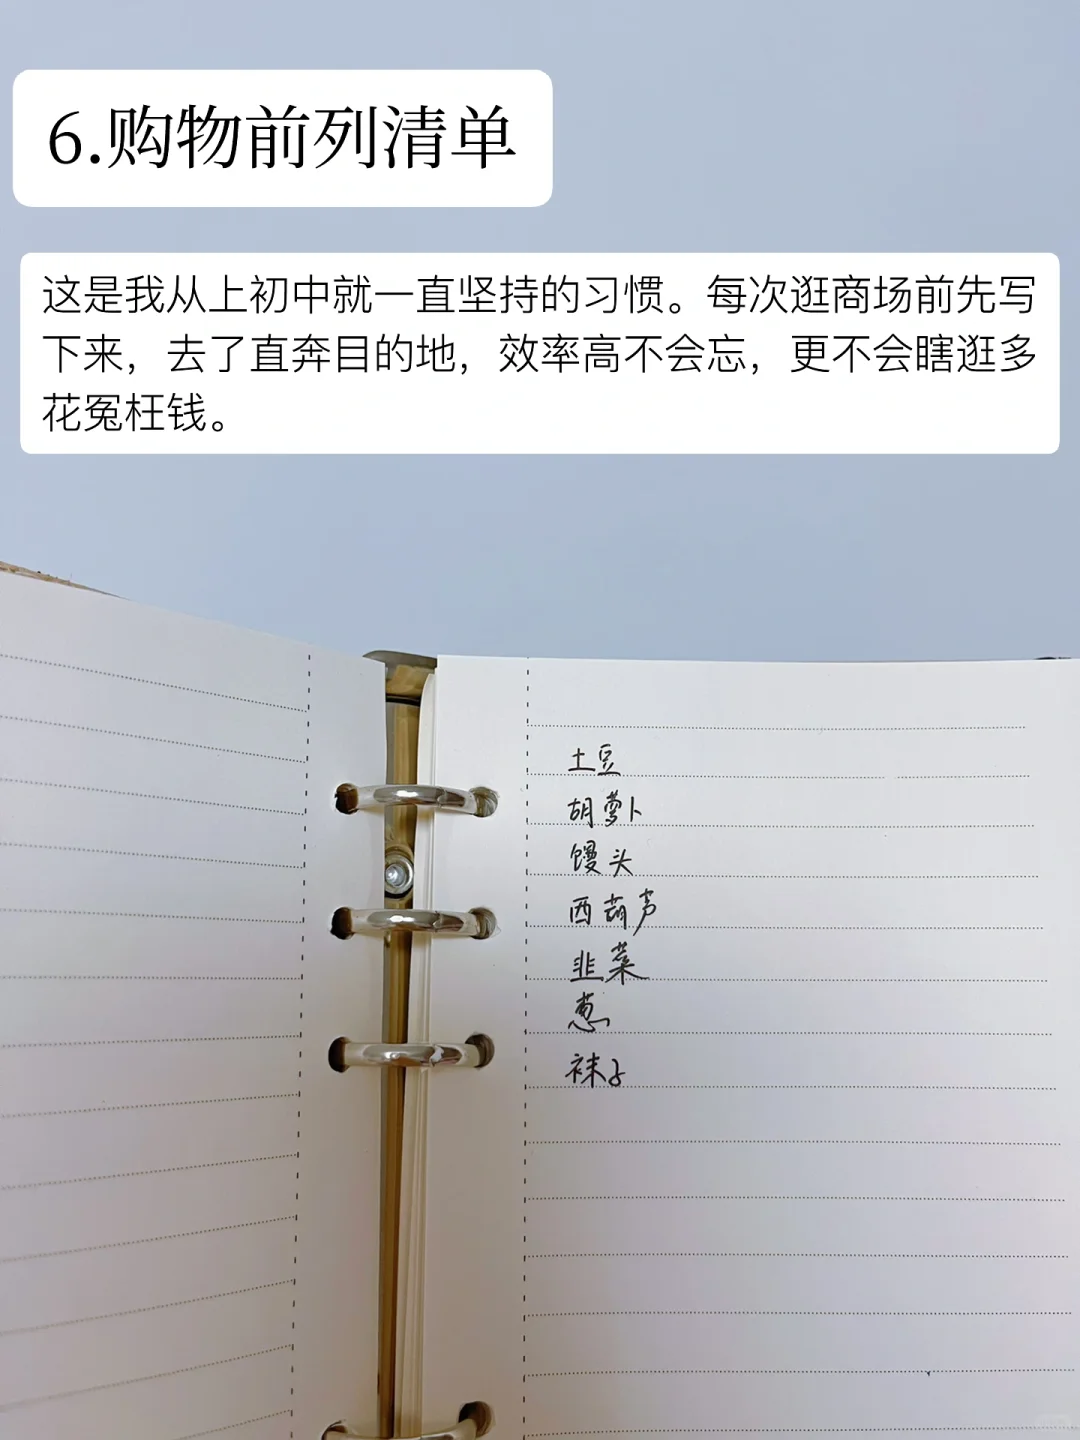 6.购物前列清单
这是我从上初中就一直坚持的习惯。每次逛商场前先写
下来，去了直奔目的地，效率高不会忘，更不会瞎逛多
花冤枉钱。
土豆
胡萝卜
馒头
西葫芦
韭菜
葱
袜子